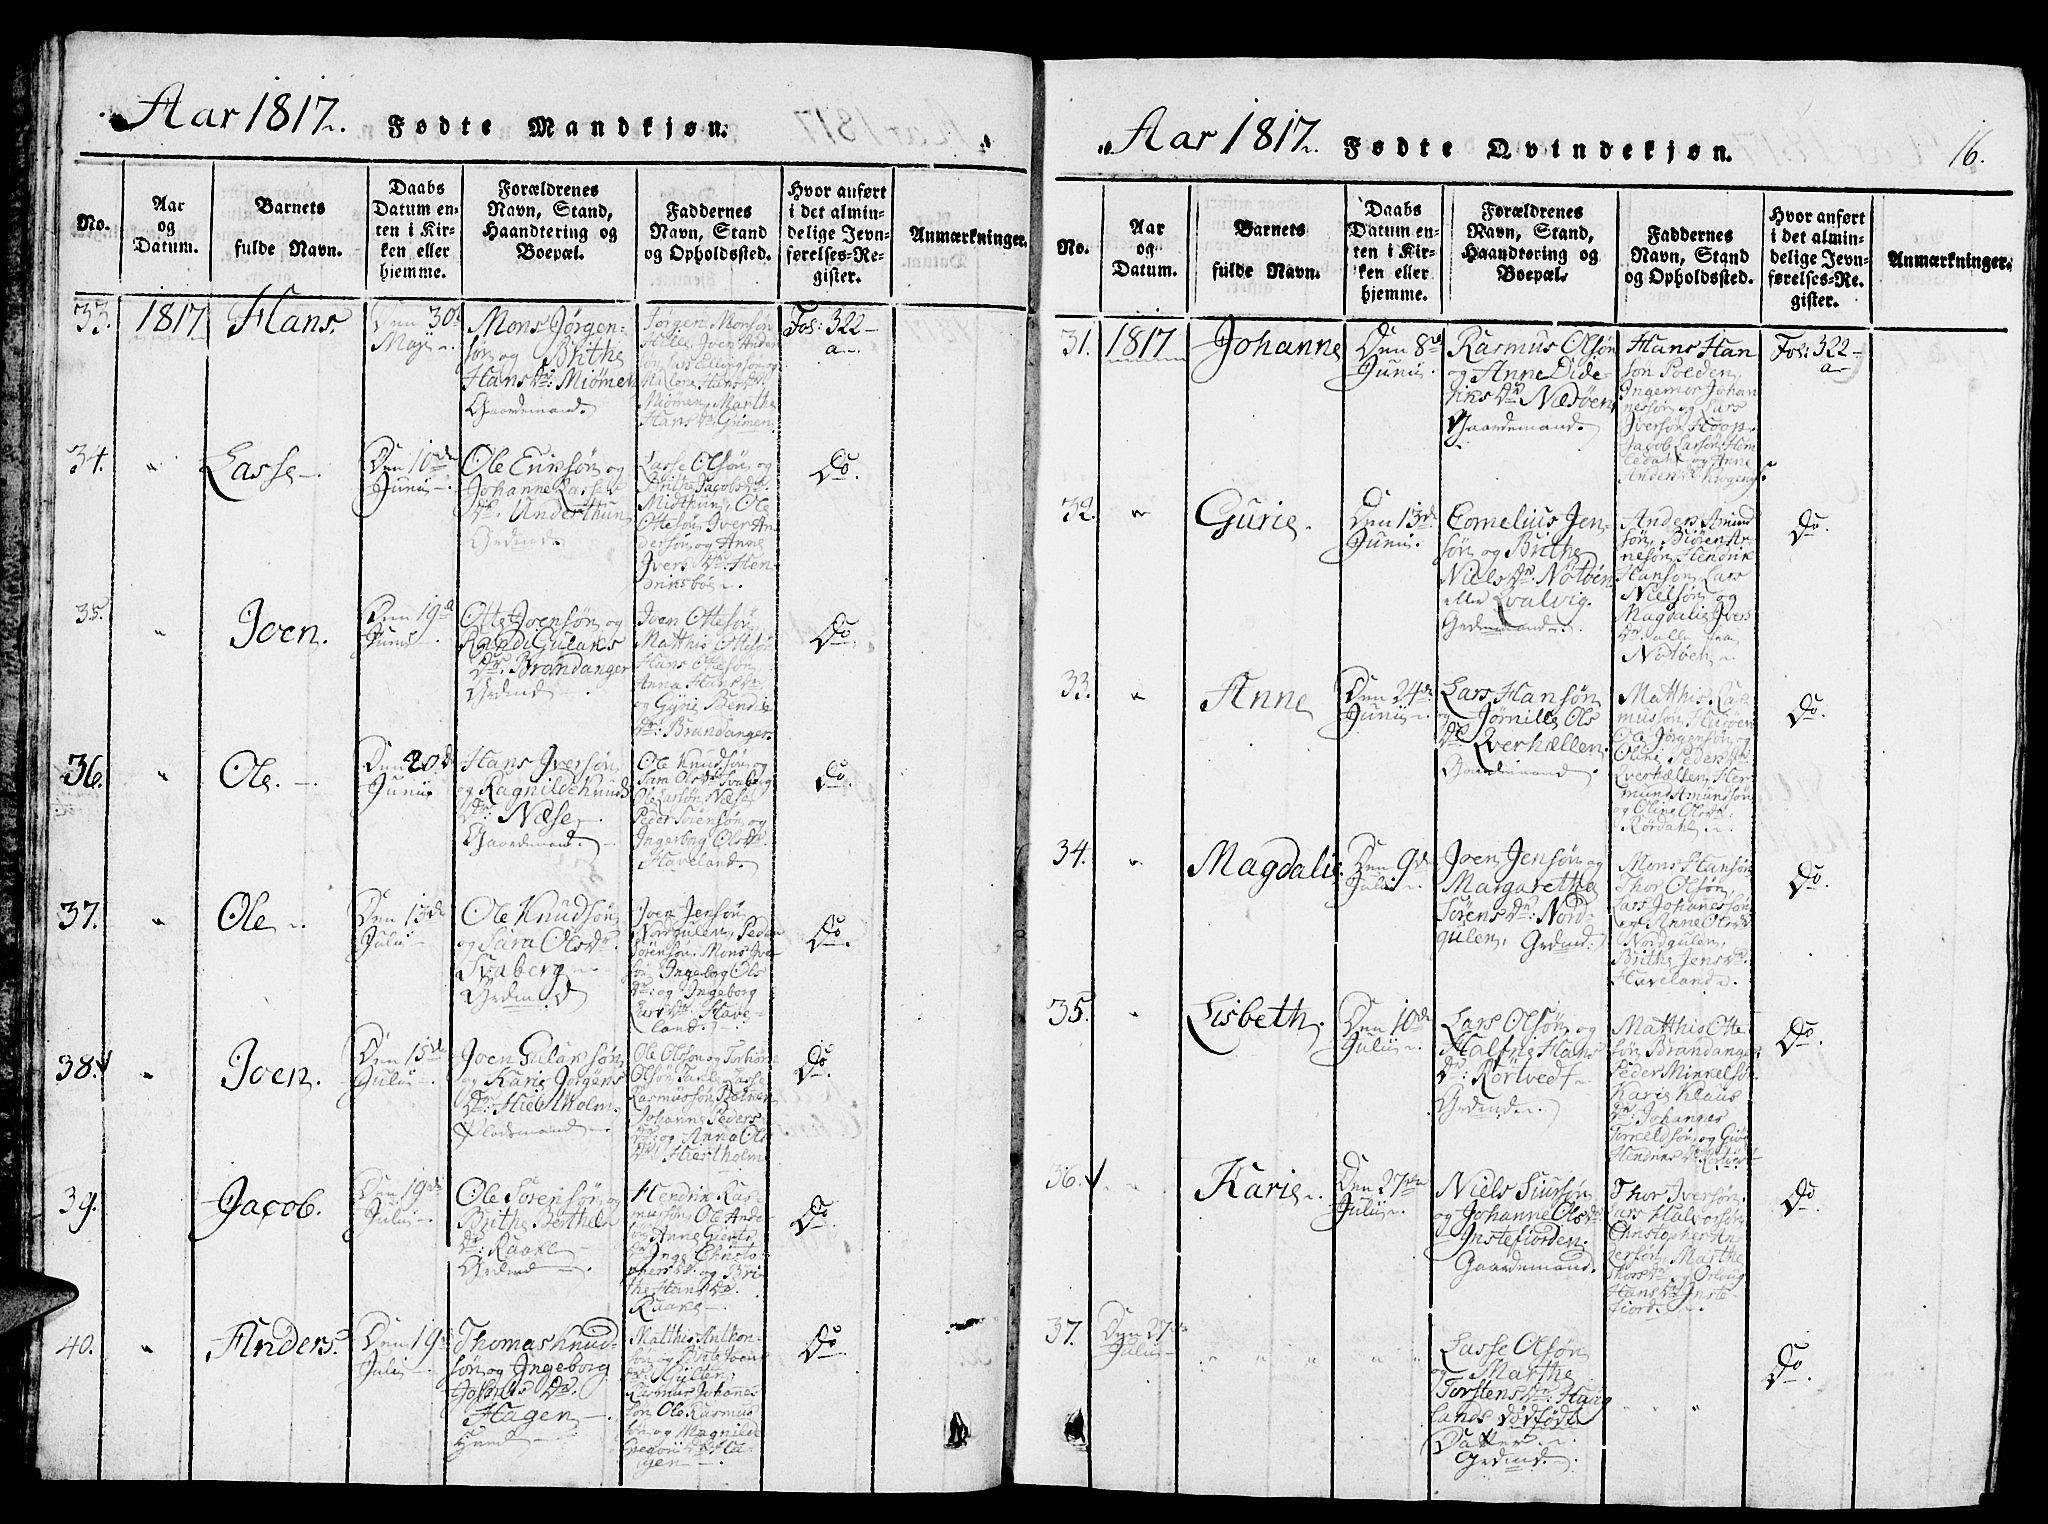 Aar 1817. Fødte Mandkjøn.
No.
Aar
og
Datum.
Barnets
fulde Navn.
Daabs
Datum en-
ten i Kir-
ken eller
hjemme.
Forældrenes
Navn, Stand,
Haandtering og
Boepæl.
Faddernes
Navn, Stand
og Opholdssted.
Hvor anført
i det almin-
delige Jevn-
førelses-Re-
gister.
Anmærkninger.
33.
1817
Hans.
Den 30te
Maji
Mons Jørgen-
søn og Brithe
Hans Dr: Miømen
Gaardemand.
Jørgen Monsøn
Hille, Iver Ander
søn, Lars Ellingsøn og
Hans Dr
Miømen, Marthe
Hans Dr Grimen
Fol: 322
a
34.
"
Lasse
Den 10de
Junii
Ole Erichsøn og
Johanne Lasse
Dr. Underthun
Grdmd.
Lasse Olsøn og
Brithe Jacobs Dr
Midthun, Ole
Ottesøn, Iver An
dersøn og Anne
Ivers Dr Hen
driksbøe
Do
35.
"
Joen.
Den 19d
Junii
Otte Joensøn og
Randi Gulaks
Dr. Brandanger
Grdmd
Joen Ottesøn,
Matthis Ottesøn
Hans Ottesøn,
Anna Hans Dr
og Gjøri Bendix
Dr: Brandanger.
Do
36.
"
Ole
Den 20de
Junii
Hans Iversøn
og Ragnilde Knuds
Dr: Næse
Gaardemand
Ole Knudsøn og
Sara Ols Dr Svaberg
Ole Larsøn Næse
Peder Sørensøn og
Ingerborg Ols Dr
Haveland.
Do
37.
"
Ole
Den 13de
Julii
Ole Knudsøn
og Sara Ols Dr.
Svaberg
Grdmd
Joen Jensøn
Nordgulen, Peder
Sørensøn, Mons Iver
søn, Ingeborg Ols
Dr: og Ingeborg
Lars Dr Have-
land.
Do
38.
"
Joen.
Den 15de
Julii
Joen Gulaksøn
og Karie Jørgens
Dr: Hiertholm.
Pladsmand
Ole Olsson og Torbiørn
Olsøn Takle, Lasse
Rasmussøn Botnen
Johanne Peders
Dr: og Anna Ols
Dr Hiertholm
Do
39.
Jacob.
Den 19de
Julii
Ole Sørensøn og
Brithe Berthels
Dr: Raake
Grdmd
Hendrik Ras-
mussøn, Ole Ande-
søn Anne Gierts
Dr Inge Christo-
phers Dr. og Bri
the Hans Dr.
Raake
Do
40.
"
Anders.
Den 19de
Julii
Thomas Knud-
søn og Ingeborg
Dr.
Hagen
Huusmd
Matthis Anthon-
søn og Brite Joens
Dr:
Rasmus Johanes
søn Ole Rasmus
søn og Magnilde
Gregorii Dr Ha
gen
Do
Aar 1817. Fødte Qvindekjøn. 16.
No.
Aar
og
Datum.
Barnets
fulde Navn.
Daabs
Datum en-
ten i Kir-
ken eller
hjemme.
Forældrenes
Navn, Stand,
Haandtering og
Boepæl.
Faddernes
Navn, Stand
og Opholdssted.
Hvor anført
i det almin-
delige Jevn-
førelses-Re-
gister.
Anmærkninger.
31.
1817
Johanne
Den 8de
Junii
Rasmus Olsøn
og Anne Dide-
riks Dr Næsøen,
Gaardemand.
Hans Han
søn Polden,
Ingemor Johan
nessøn og Lars
Iversøn Koop
Jacob Larsøn Hem
ledahl og Anne
Anders Dr Krogeng.
Fol: 322
a
32.
"
Gurie.
Den 13de
Junii
Cornelius Jen-
søn og Brithe
Niels Dr. Notøen
eller Qvalvig.
Grdmand.
Anders Amund
søn, Biørn Ar
nesøn, Hendrik
Hansøn, Lars
Nielsøn og
Magdalie Ivers
Dr alle fra
Notøen
Do.
33.
"
Anne
Den 24de
Junii
Lars Hansøn
og Jørnille Ols
Dr Qverhællen
Gaardemand
Matthis Ras
mussøn Husøen
Ole Jørgensøn og
Oline Peders Dr
Qverhællen, Her
mund Amundsøn
og Oline Ols Dr
Rørdahl
Do.
34.
"
Magdalie.
Den 9de
Julii
Joen Jensøn og
Margarethe
Sørens Dr: Nord-
gulen, Grdmd.
Mons Hansøn,
Thor Olsøn,
Lars Johanessøn
og Anne Ols Dr
Nordgulen,
Brithe Jens Dr.
Haveland.
Do.
35.
"
Lisbeth.
Den 10de
Julii
Lars Olsøn og
Halfrie Hans
Dr: Rørtvedt
Grdmd.
Matthis Otte
søn Brandanger
Peder Minkelsøn
Karie Klaus
Dr: Johannes
Torkeldsøn og Giøri
Hendriks Dr Rørtvet
Do.
36.
Karie
Den 27de
Julii
Niels Siursøn
og Johanne Ols Dr
Instefiorden.
Gaardemand.
Thor Iversøn,
Lars Halvorsøn
Christopher An
dersøn, Marthe
Thors Dr. og Orloug
Hans Dr Inste-
fiord.
Do.
37.
Den 27de
Julii
" " " " "
Lasse Olsøn
og Marthe
Torstens Dr Haug
lands dødfødte
Datter
Grdmd.
" " "
Do.